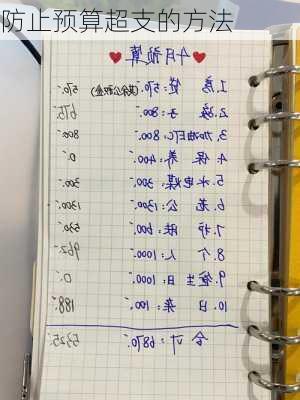 防止预算超支的方法
月预算
1.房贷:570. 公积金) 570.
2.孩子:800. 675.
3.加油ETC:800. 800
4.保养:400. 0.
5.水电煤:300. 300.
6.老公:1300. 1300.
7.护肤:600. 530.
8.个人:1000. 962.
9. 生日:1000. 0.
10.日杂:100. 188.
合计:6870. 5325.